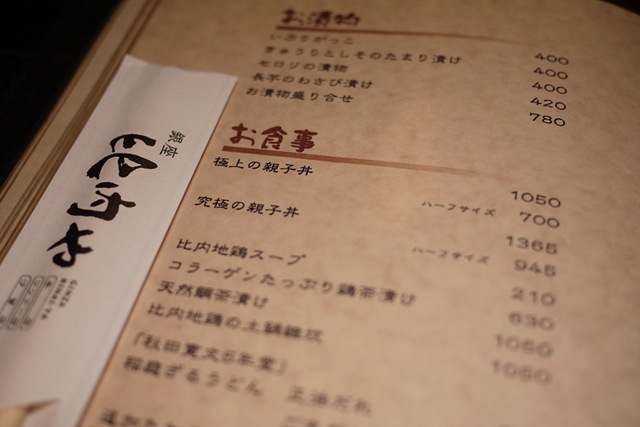 お漬物
いぶりがっこ 400
きゅうりとしそのたまり漬け 400
セロリの漬物 400
長芋のわさび漬け 420
お漬物盛り合せ 780
お食事
極上の親子丼 1050
ハーフサイズ 700
究極の親子丼 1365
ハーフサイズ 945
比内地鶏スープ 210
コラーゲンたっぷり鶏茶漬け 630
天然鯛茶漬け 1050
比内地鶏の土鍋雑炊 1050
「秋田寛文五年堂」
稲庭ざるうどん 正油だれ
銀座
比内や
GINZA
HINAI-YA